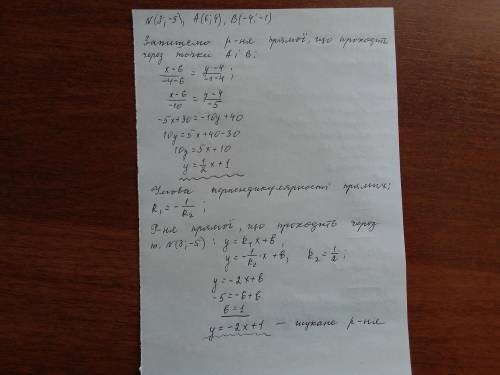 N(3;-5), A(6;4), B(-4;-1)
Запишемо р-ня прямої, що проходить
через точки A і B:
(x-6)/(-4-6) = (y-4)/(-1-4);
(x-6)/(-10) = (y-4)/(-5)
-5x+30=-10y+40
10y=5x+40-30
10y=5x+10
y=1/2 x+1
Умова перпендикулярності прямих:
k₁=-1/k₂;
Р-ня прямої, що проходить через
т. N(3;-5): y=k₁x+b;
y=-1/k₂·x+b, k₂=1/2;
y=-2x+b
-5=-6+b
b=1
y=-2x+1 — шукане р-ня